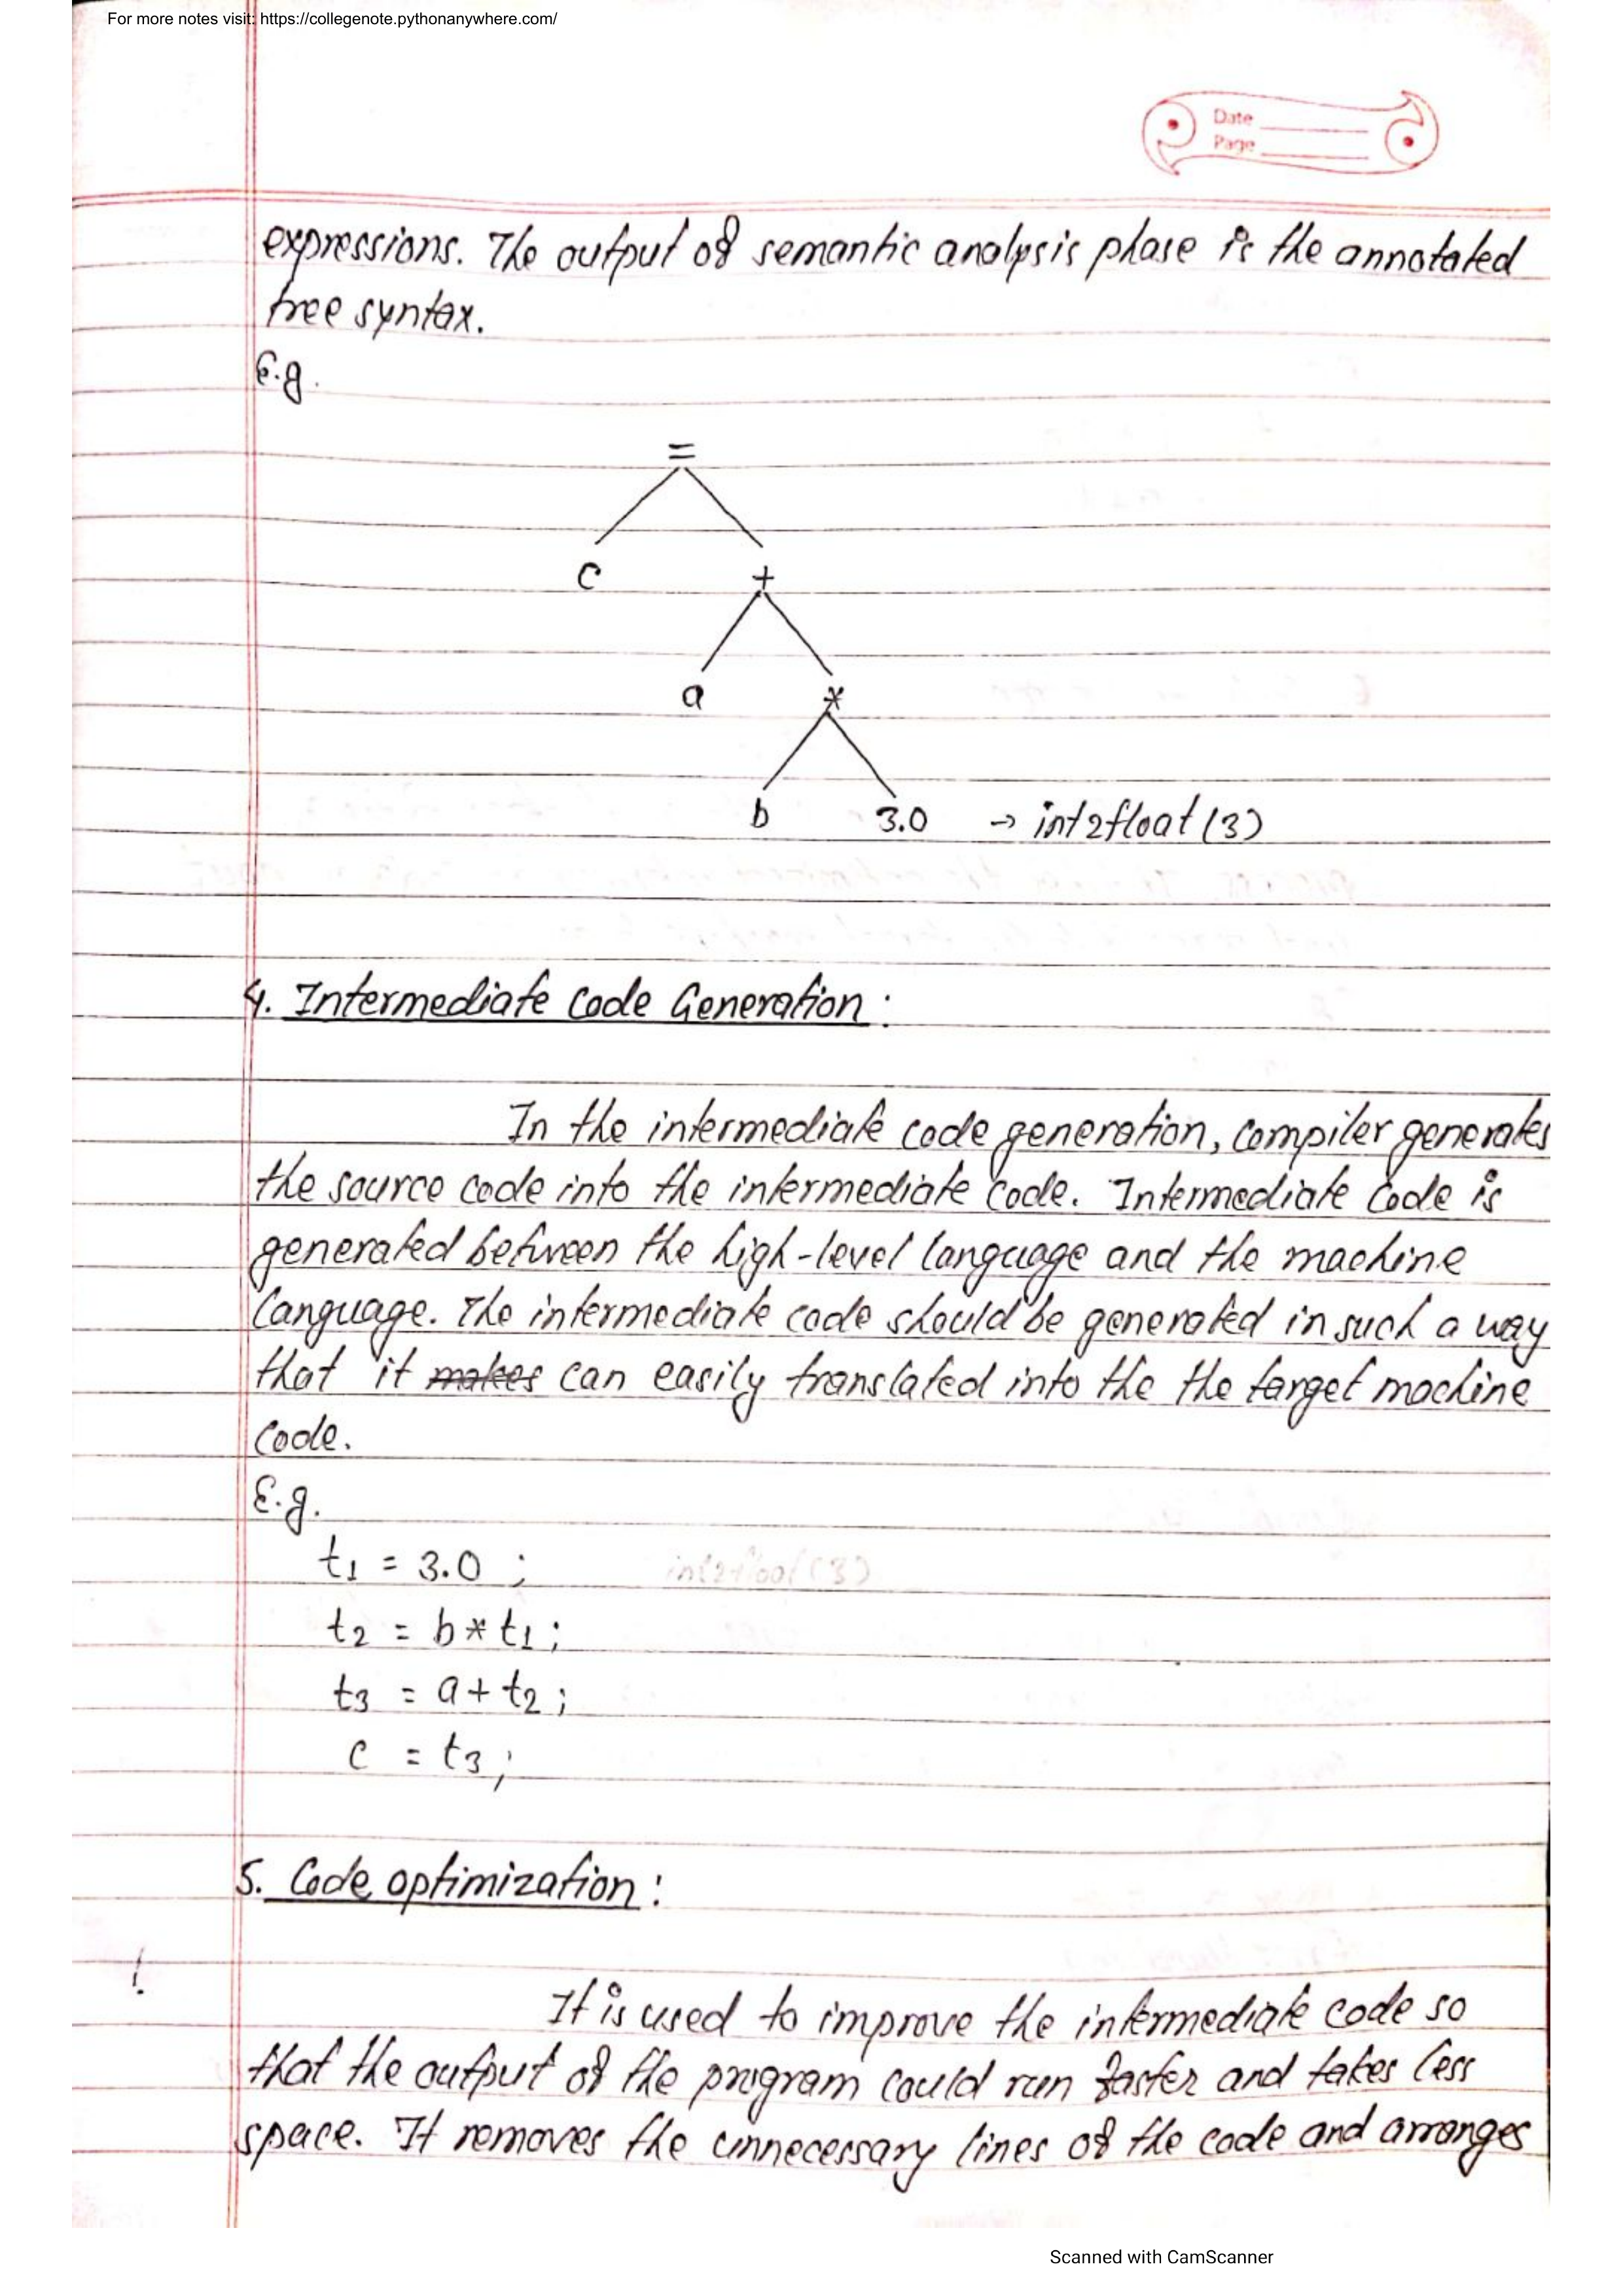 For more notes visit: https://collegenote.pythonanywhere.com/
Date
Page
expressions. The output of semantic analysis phase is the annotated
tree syntax.
E.g.
=
c +
a *
b 3.0 → int2float(3)
4. Intermediate Code Generation :
In the intermediate code generation, compiler generates
the source code into the intermediate code. Intermediate code is
generated between the high-level language and the machine
language. The intermediate code should be generated in such a way
that it makes can easily translated into the the target machine
code.
E.g.
t1 = 3.0 ; int2float(3)
t2 = b * t1 ;
t3 = a + t2 ;
c = t3 ;
5. Code optimization :
It is used to improve the intermediate code so
that the output of the program could run faster and takes less
space. It removes the unnecessary lines of the code and arranges
Scanned with CamScanner